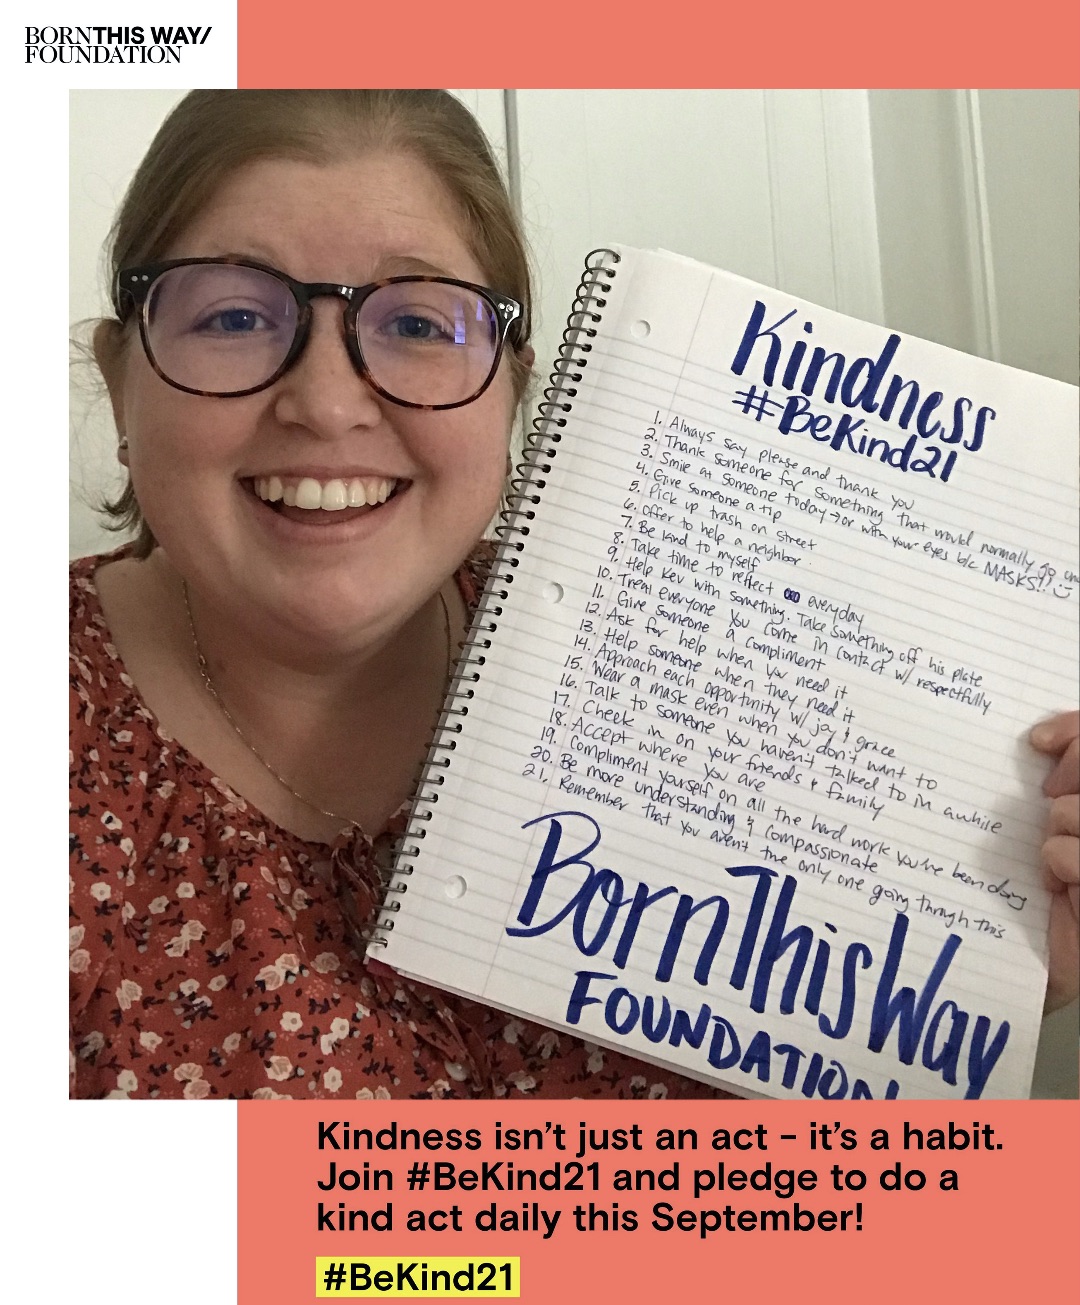 BORNTHIS WAY/
FOUNDATION
Kindness
#BeKind21
1. Always say please and thank you
2. Thank someone for something that would normally go
3. Smile at someone today → or with your eyes b/c MASKS!!
4. Give someone a tip
5. Pick up trash on street
6. Offer to help a neighbor
7. Be kind to myself
8. Take time to reflect everyday
9. Help Kev with something. Take something off his plate
10. Treat everyone you come in contact w/ respectfully
11. Give someone a compliment
12. Ask for help when you need it
13. Help someone when they need it
14. Approach each opportunity w/ joy & grace
15. Wear a mask even when you don't want to
16. Talk to someone you haven't talked to in awhile
17. Check in on your friends & family
18. Accept where you are
19. Compliment yourself on all the hard work you've been doing
20. Be more understanding & compassionate
21. Remember that you aren't the only one going through this
BornThisWay
FOUNDATION
Kindness isn't just an act – it's a habit.
Join #BeKind21 and pledge to do a
kind act daily this September!
#BeKind21